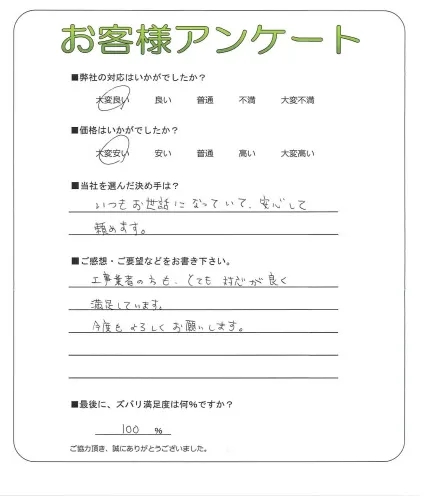 お客様アンケート
■弊社の対応はいかがでしたか？
大変良い 良い 普通 不満 大変不満
■価格はいかがでしたか？
大変安い 安い 普通 高い 大変高い
■当社を選んだ決め手は？
いつもお世話になっていて、安心して
頼めます。
■ご感想・ご要望などをお書き下さい。
工事業者の方も、とても対応が良く
満足しています。
今度もよろしくお願いします。
■最後に、ズバリ満足度は何％ですか？
100 ％
ご協力頂き、誠にありがとうございました。